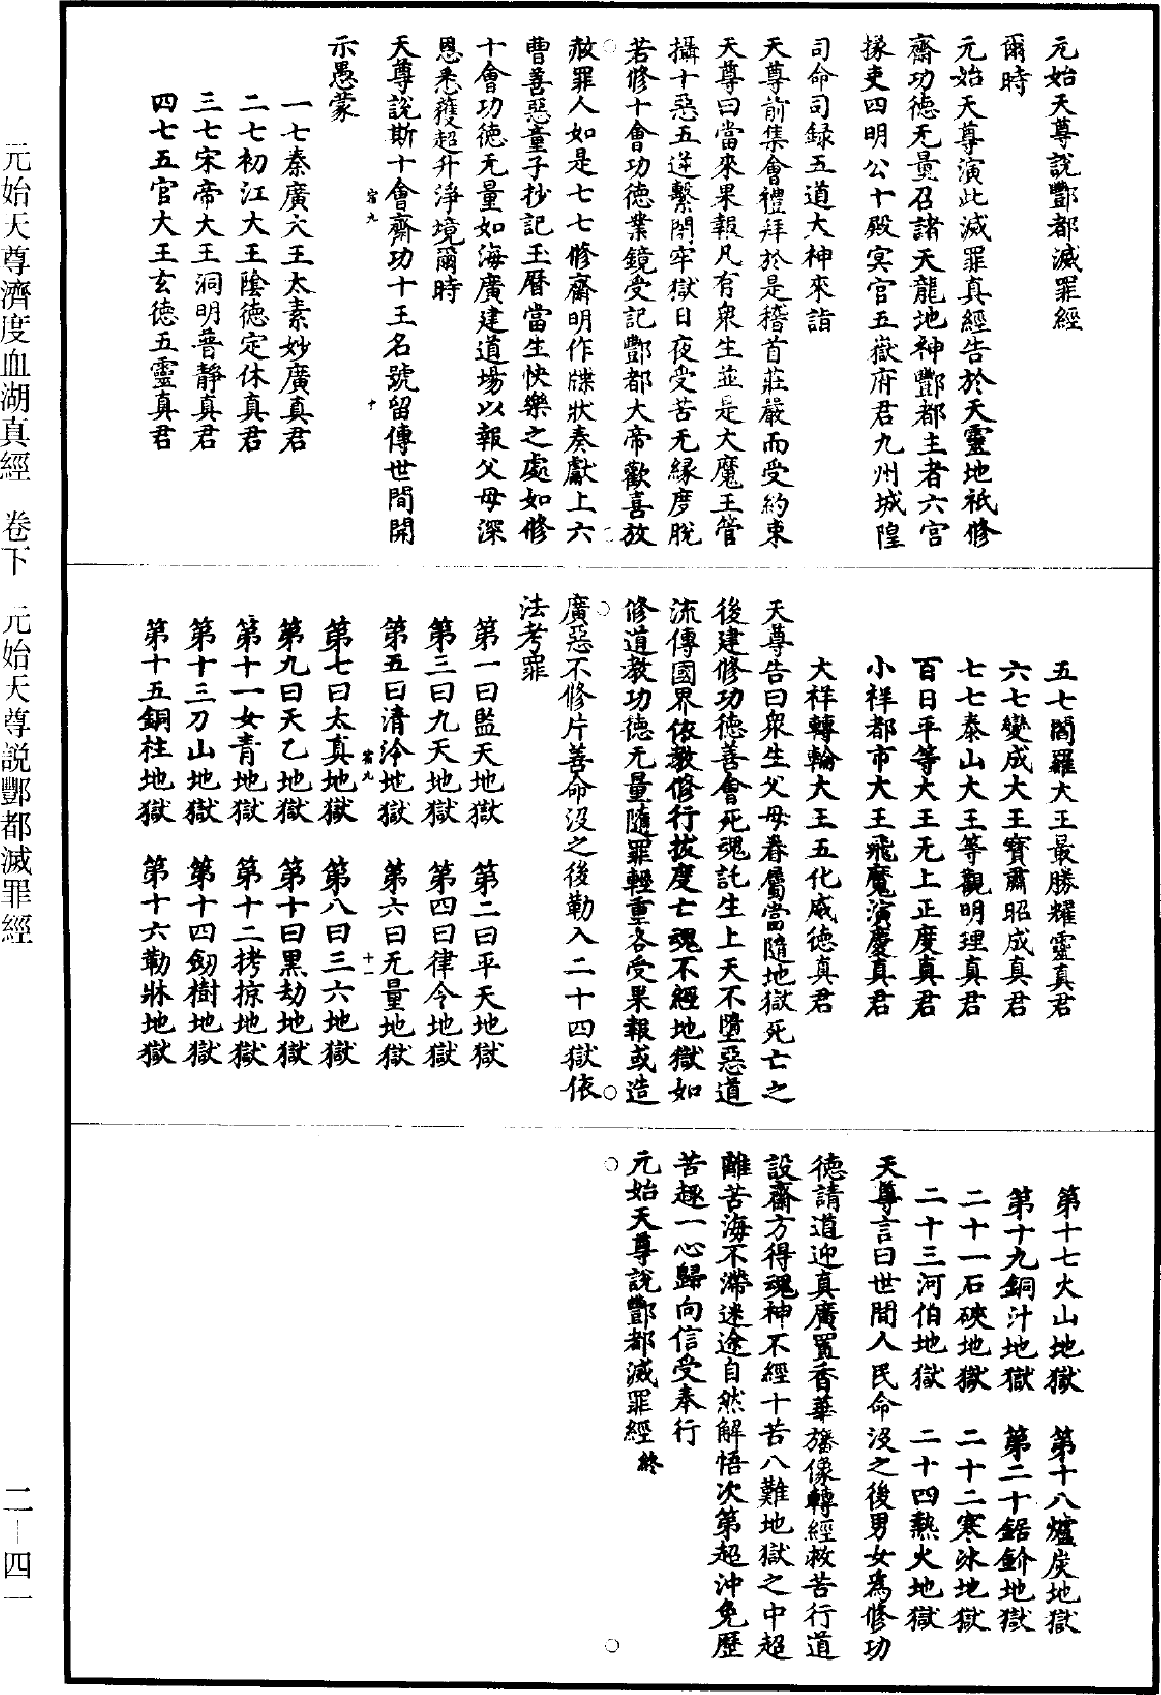 元始天尊說酆都滅罪經
爾時
元始天尊演此滅罪真經告於天靈地祇修
齋功德无量召諸天龍地神酆都主者六宮
掾吏四明公十殿冥官五嶽府君九州城隍
司命司録五道大神來詣
天尊前集會禮拜於是稽首莊嚴而受約束
天尊曰當來果報凡有衆生並是大魔王管
攝十惡五逆繫閉牢獄日夜受苦无緣度脫
若修十會功德業鏡受記酆都大帝歡喜放
赦罪人如是七七修齋明作牒狀奏獻上六
曹善惡童子抄記玉曆當生快樂之處如修
十會功德无量如海廣建道場以報父母深
恩悉獲超升淨境爾時
天尊說斯十會齋功十王名號留傳世間開
宿九 十
示愚蒙
一七秦廣大王太素妙廣真君
二七初江大王陰德定休真君
三七宋帝大王洞明普靜真君
四七五官大王玄德五靈真君
五七閻羅大王最勝耀靈真君
六七變成大王寶肅昭成真君
七七泰山大王等觀明理真君
百日平等大王无上正度真君
小祥都市大王飛魔演慶真君
大祥轉輪大王五化威德真君
天尊告曰衆生父母眷屬當隨地獄死亡之
後建修功德善會死魂託生上天不墮惡道
流傳國界依教修行拔度亡魂不經地獄如
修道教功德无量隨罪輕重各受果報或造
廣惡不修片善命沒之後勒入二十四獄依
法考罪
第一曰監天地獄 第二曰平天地獄
第三曰九天地獄 第四曰律令地獄
第五曰清泠地獄 第六曰无量地獄
宿九 十一
第七曰太真地獄 第八曰三六地獄
第九曰天乙地獄 第十曰黑劫地獄
第十一女青地獄 第十二拷掠地獄
第十三刀山地獄 第十四劔樹地獄
第十五銅柱地獄 第十六勒牀地獄
第十七火山地獄 第十八爐炭地獄
第十九銅汁地獄 第二十鋸鈝地獄
二十一石硤地獄 二十二寒冰地獄
二十三河伯地獄 二十四熱火地獄
天尊言曰世間人民命沒之後男女為修功
德請道迎真廣置香華旛像轉經救苦行道
設齋方得魂神不經十苦八難地獄之中超
離苦海不滯迷途自然解悟次第超沖免歷
苦趣一心歸向信受奉行
元始天尊說酆都滅罪經 終
元始天尊濟度血湖真經 卷下 元始天尊説酆都滅罪經
二—四一